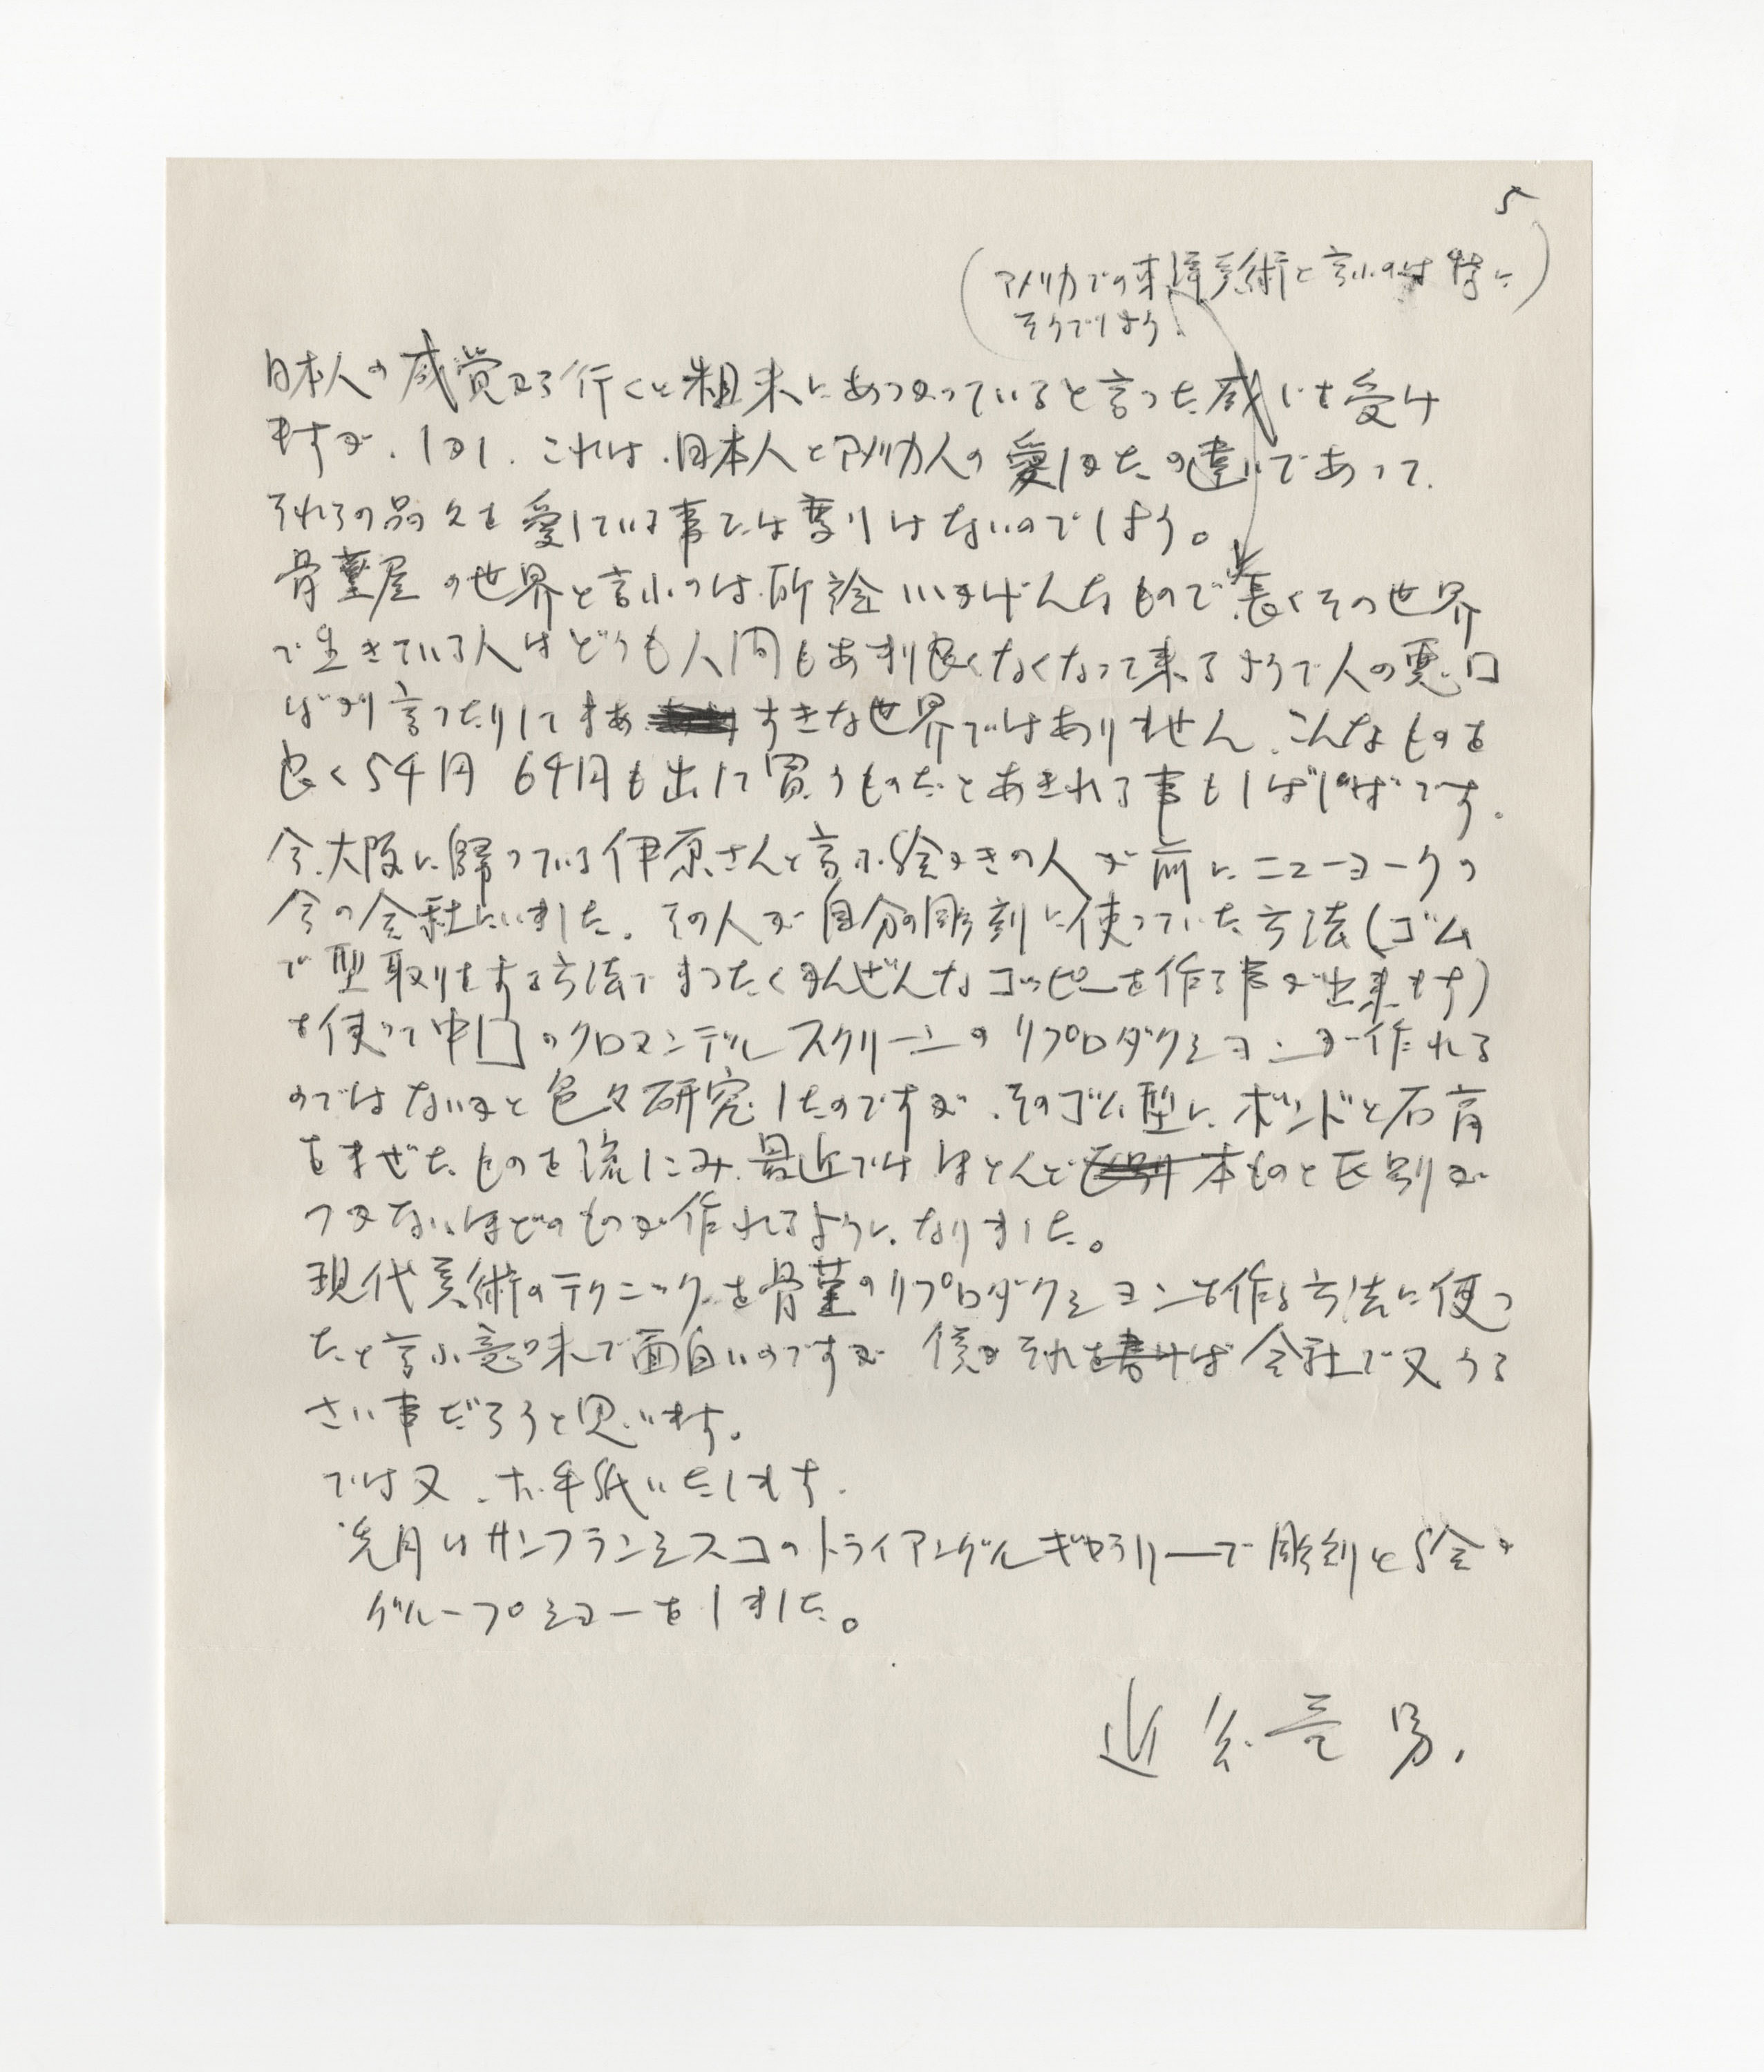 5
(アメリカでの東洋美術と言ふのは特に
そうでしょう)
日本人の感覚から行くと粗末にあつかっていると言った感じを受け
ますが、しかし、これは、日本人とアメリカ人の愛しかたの違いであって、
それらの品々を愛している事では変りはないのでしょう。
骨董屋の世界と言ふのは所詮いいかげんなもので長くその世界
で生きている人はどうも人間もあまり良くなくなって来るようで人の悪口
ばかり言ったりしてまあ すきな世界ではありません、こんなものを
良く5千円 6千円も出して買うものだとあきれる事もしばしばです。
今、大阪に帰っている伊原さんと言ふ絵かきの人が前にニューヨークの
今の会社にいました。その人が自分の彫刻に使っていた方法(ゴム
で型取りをする方法でまったくかんぜんなコッピーを作る事が出来ます)
を使って中国のクロマンデルスクリーンのリプロダクションが作れる
のではないかと色々研究したのですが、そのゴム型に、ボンドと石膏
をまぜたものを流しこみ、最近ではほとんど区別本ものと区別が
つかないほどのものが作れるように、なりました。
現代美術のテクニックを骨董のリプロダクションを作る方法に使っ
たと言ふ意味で面白いのですが 僕がそれを書けば会社で又うる
さい事だろうと思います。
では又、お手紙いたします。
先月はサンフランシスコのトライアングルギャラリーで彫刻と絵の
グループショーをしました。
近 竜 男.